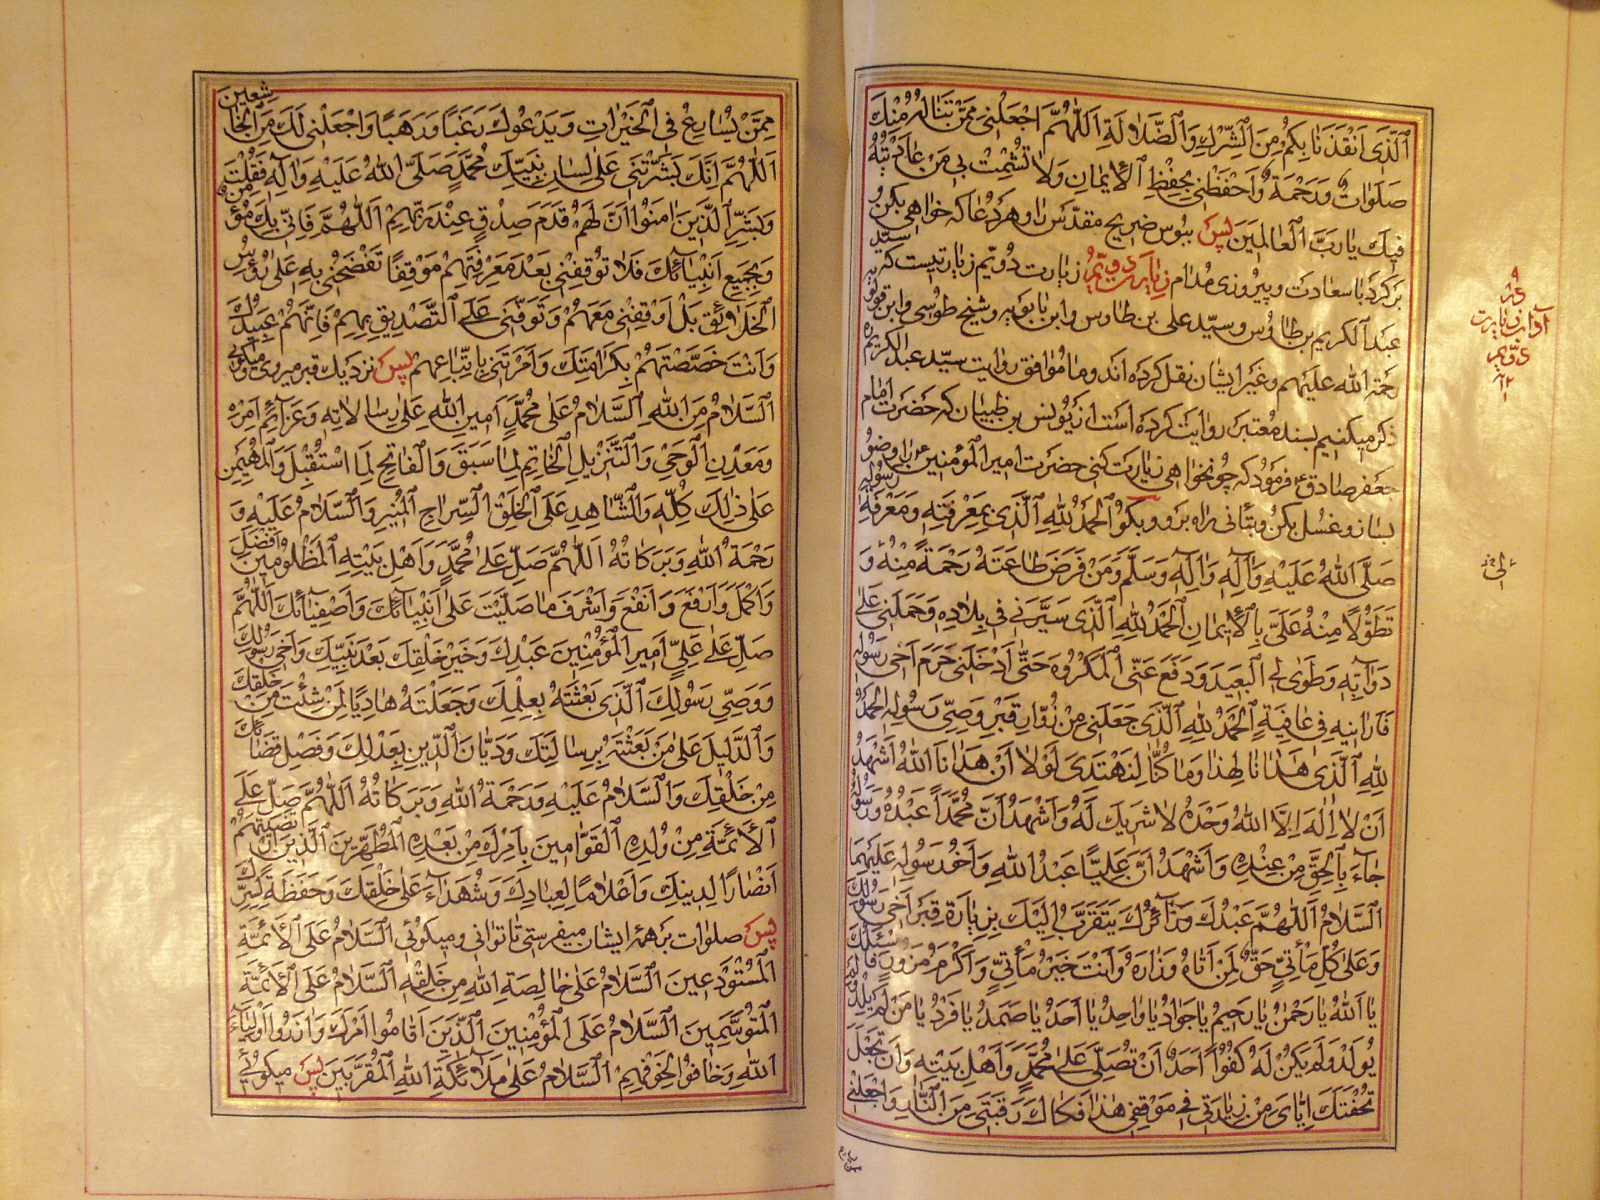 الَّذی اَنْقَذَنا بِکُمْ مِنَ الشِّرْكِ وَالضَّلالَةِ اَللّٰهُمَّ اجْعَلْنی مِمَّنْ تَنالُهُ مِنْكَ
صَلَواتٌ وَرَحْمَةٌ وَاحْفَظْنی بِحِفْظِ الْاِیمانِ وَلا تُشْمِتْ بی مَنْ عادَیْتُهُ
فیكَ یا رَبَّ الْعالَمینَ پس ببوس ضریح مقدّس را و هر دعا که خواهی بکن و
برکرد با سعادت و پیروزی مدام زیارت دویّم زیارت دویّم زیارتیست که سیّد
عبد الکریم بن طاوس و سیّد علی بن طاوس و ابن بابویه و شیخ طوسی و ابن قولویه
رحمة الله علیهم و غیر ایشان نقل کرده اند و ما موافق روایت سیّد عبد الکریم ره
ذکر میکنیم بسند معتبر روایت کرده است از یونس بن ظبیان که حضرت امام
جعفر صادق ع فرمود که چون خواهی زیارت کنی حضرت امیر المؤمنین ع را وضو
بساز و غسل بکن و بتأنی براه برو و بکو اَلْحَمْدُ لِلّٰهِ الَّذی بِمَعْرِفَتِهِ وَمَعْرِفَةِ رَسُولِهِ
صَلَّی اللّٰهُ عَلَیْهِ وَآلِهِ وَسَلَّمَ وَمَنْ فَرَضَ طاعَتَهُ رَحْمَةً مِنْهُ وَ
تَطَوُّلًا مِنْهُ عَلَیَّ بِالْاِیمانِ اَلْحَمْدُ لِلّٰهِ الَّذی سَیَّرَنی فی بِلادِهِ وَحَمَلَنی عَلی
دَوابِّهِ وَطَوی لِیَ الْبَعیدَ وَدَفَعَ عَنِّی الْمَکْرُوهَ حَتّی اَدْخَلَنی حَرَمَ اَخی رَسُولِهِ
فَاَرانیهِ فی عافِیَةٍ اَلْحَمْدُ لِلّٰهِ الَّذی جَعَلَنی مِنْ زُوّارِ قَبْرِ وَصِیِّ رَسُولِهِ اَلْحَمْدُ
لِلّٰهِ الَّذی هَدانا لِهٰذا وَما کُنّا لِنَهْتَدِیَ لَوْلا اَنْ هَدانَا اللّٰهُ اَشْهَدُ
اَنْ لا اِلٰهَ اِلَّا اللّٰهُ وَحْدَهُ لا شَرِیكَ لَهُ وَاَشْهَدُ اَنَّ مُحَمَّدًا عَبْدُهُ وَرَسُولُهُ
جاءَ بِالْحَقِّ مِنْ عِنْدِهِ وَاَشْهَدُ اَنَّ عَلِیًّا عَبْدُ اللّٰهِ وَاَخُو رَسُولِهِ عَلَیْهِمَا
السَّلامُ اَللّٰهُمَّ عَبْدُكَ وَزائِرُكَ یَتَقَرَّبُ اِلَیْكَ بِزِیارَةِ قَبْرِ اَخی رَسُولِكَ
وَعَلی کُلِّ مَأْتِیٍّ حَقٌّ لِمَنْ اَتاهُ وَزارَهُ وَاَنْتَ خَیْرُ مَأْتِیٍّ وَاَکْرَمُ مَزُورٍ فَاَسْئَلُكَ
یا اَللّٰهُ یا رَحْمٰنُ یا رَحیمُ یا جَوادُ یا واحِدُ یا اَحَدُ یا صَمَدُ یا فَرْدُ یا مَنْ لَمْ یَلِدْ وَلَمْ
یُولَدْ وَلَمْ یَکُنْ لَهُ کُفُوًا اَحَدٌ اَنْ تُصَلِّیَ عَلی مُحَمَّدٍ وَاَهْلِ بَیْتِهِ وَاَنْ تَجْعَلَ
تُحْفَتَكَ اِیّایَ مِنْ زِیارَتی فی مَوْقِفی هٰذا فَکاكَ رَقَبَتی مِنَ النّارِ وَاجْعَلْنی
آداب زیارت
دویّم
مِمَّنْ یُسارِعُ فِی الْخَیْراتِ وَیَدْعُوكَ رَغَبًا وَرَهَبًا وَاجْعَلْنی لَكَ مِنَ الْخاشِعینَ
اَللّٰهُمَّ اِنَّكَ بَشَّرْتَنی عَلی لِسانِ نَبِیِّكَ مُحَمَّدٍ صَلَّی اللّٰهُ عَلَیْهِ وَآلِهِ فَقُلْتَ
وَبَشِّرِ الَّذینَ امَنُوا اَنَّ لَهُمْ قَدَمَ صِدْقٍ عِنْدَ رَبِّهِمْ اَللّٰهُمَّ فَاِنّی بِكَ مُؤْمِنٌ
وَبِجَمیعِ اَنْبِیائِكَ فَلا تُوقِفْنی بَعْدَ مَعْرِفَتِهِمْ مَوْقِفًا تَفْضَحُنی بِهِ عَلی رُؤُسِ
الْخَلائِقِ بَلْ اَوْقِفْنی مَعَهُمْ وَتَوَفَّنی عَلَی التَّصْدیقِ بِهِمْ فَاِنَّهُمْ عَبیدُكَ
وَاَنْتَ خَصَّصْتَهُمْ بِکَرامَتِكَ وَاَمَرْتَنی بِاتِّباعِهِمْ پس نزدیك قبر میروی و میکوئی
اَلسَّلامُ مِنَ اللّٰهِ اَلسَّلامُ عَلی مُحَمَّدٍ اَمینِ اللّٰهِ عَلی رِسالاتِهِ وَعَزائِمِ اَمْرِهِ
وَمَعْدِنِ الْوَحْیِ وَالتَّنْزیلِ الْخاتِمِ لِما سَبَقَ وَالْفاتِحِ لِمَا اسْتُقْبِلَ وَالْمُهَیْمِنِ
عَلی ذٰلِكَ کُلِّهِ وَالشّاهِدِ عَلَی الْخَلْقِ السِّراجِ الْمُنیرِ وَالسَّلامُ عَلَیْهِ وَ
رَحْمَةُ اللّٰهِ وَبَرَکاتُهُ اَللّٰهُمَّ صَلِّ عَلی مُحَمَّدٍ وَاَهْلِ بَیْتِهِ الْمَظْلُومینَ اَفْضَلَ
وَاَکْمَلَ وَاَرْفَعَ وَاَنْفَعَ وَاَشْرَفَ ما صَلَّیْتَ عَلی اَنْبِیائِكَ وَاَصْفِیائِكَ اَللّٰهُمَّ
صَلِّ عَلی عَلِیٍّ اَمیرِ الْمُؤْمِنینَ عَبْدِكَ وَخَیْرِ خَلْقِكَ بَعْدَ نَبِیِّكَ وَاَخی رَسُولِكَ
وَوَصِیِّ رَسُولِكَ الَّذی بَعَثْتَهُ بِعِلْمِكَ وَجَعَلْتَهُ هادِیًا لِمَنْ شِئْتَ مِنْ خَلْقِكَ
وَالدَّلیلَ عَلی مَنْ بَعَثْتَهُ بِرِسالَتِكَ وَدَیّانَ الدّینِ بِعَدْلِكَ وَفَصْلِ قَضائِكَ
مِنْ خَلْقِكَ وَالسَّلامُ عَلَیْهِ وَرَحْمَةُ اللّٰهِ وَبَرَکاتُهُ اَللّٰهُمَّ صَلِّ عَلَی
الْاَئِمَّةِ مِنْ وُلْدِهِ الْقَوّامینَ بِاَمْرِكَ مِنْ بَعْدِهِ الْمُطَهَّرینَ الَّذینَ ارْتَضَیْتَهُمْ
اَنْصارًا لِدینِكَ وَاَعْلامًا لِعِبادِكَ وَشُهَداءَ عَلی خَلْقِكَ وَحَفَظَةً لِسِرِّكَ
پس صلوات بر همه ایشان میفرستی تا توانی و میکوئی اَلسَّلامُ عَلَی الْاَئِمَّةِ
الْمُسْتَوْدَعینَ اَلسَّلامُ عَلی خالِصَةِ اللّٰهِ مِنْ خَلْقِهِ اَلسَّلامُ عَلَی الْاَئِمَّةِ
الْمُتَوَسِّمینَ اَلسَّلامُ عَلَی الْمُؤْمِنینَ الَّذینَ اَقامُوا اَمْرَكَ وَازَرُوا اَوْلِیاءَ
اللّٰهِ وَخافُوا لِخَوْفِهِمْ اَلسَّلامُ عَلی مَلائِکَةِ اللّٰهِ الْمُقَرَّبینَ پس میکوئی